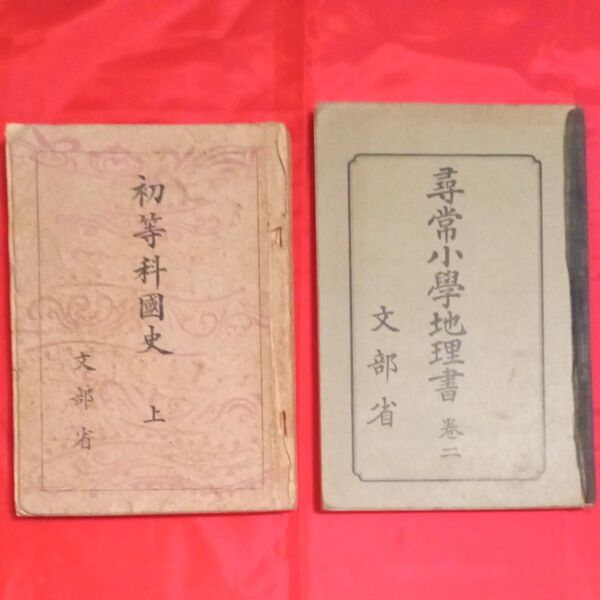 初等科國史 上
文部省
尋常小學地理書 卷二
文部省